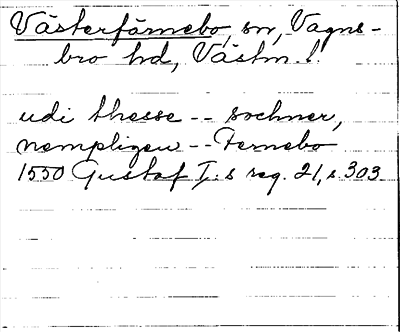 Västerfärnebo, sn, Vagns-
bro hd, Västm. l.
udi thesse -- sochner,
nempligen -- Fernebo
1550 Gustaf I:s reg. 21, s. 303.